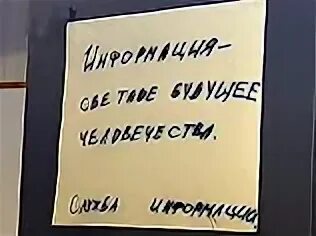 Информация–
светлое будущее
человечества.
Служба информации.